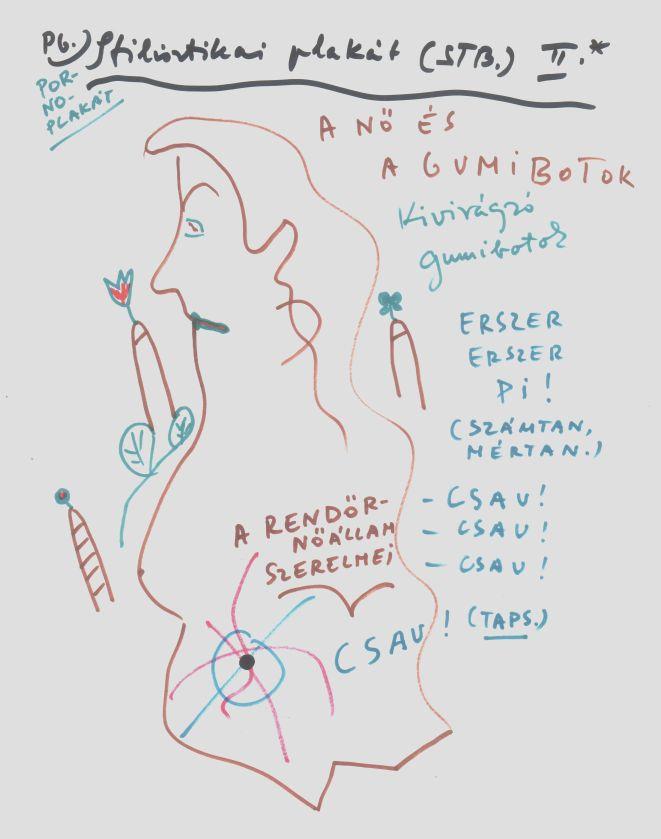 PG.) Stilisztikai plakát (STB.) II.*
POR-
NO-
PLAKÁT
A NŐ ÉS
A GUMIBOTOK
Kivirágzó
gumibotok
ERSZER
ERSZER
PI!
(SZÁMTAN,
MÉRTAN.)
- CSAU!
- CSAU!
- CSAU!
A RENDŐR-
NŐÁLLAM
SZERELMEI
CSAU! (TAPS.)